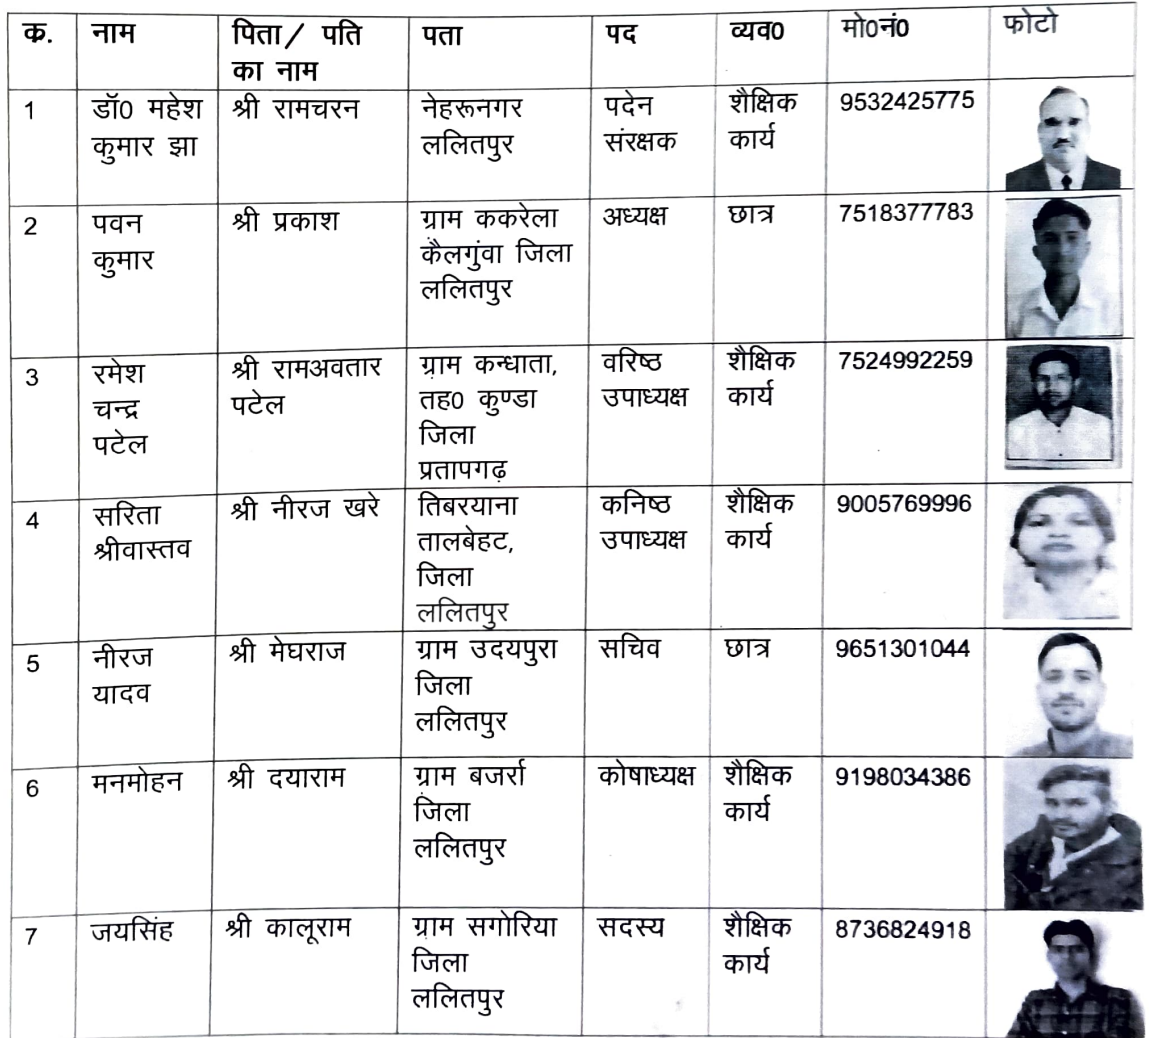 क. नाम पिता/ पति का नाम पता पद व्यव0 मो0नं0 फोटो
1 डॉ0 महेश कुमार झा श्री रामचरन नेहरूनगर ललितपुर पदेन संरक्षक शैक्षिक कार्य 9532425775
2 पवन कुमार श्री प्रकाश ग्राम ककरेला कैलगुंवा जिला ललितपुर अध्यक्ष छात्र 7518377783
3 रमेश चन्द्र पटेल श्री रामअवतार पटेल ग्राम कन्धाता, तह0 कुण्डा जिला प्रतापगढ़ वरिष्ठ उपाध्यक्ष शैक्षिक कार्य 7524992259
4 सरिता श्रीवास्तव श्री नीरज खरे तिबरयाना तालबेहट, जिला ललितपुर कनिष्ठ उपाध्यक्ष शैक्षिक कार्य 9005769996
5 नीरज यादव श्री मेघराज ग्राम उदयपुरा जिला ललितपुर सचिव छात्र 9651301044
6 मनमोहन श्री दयाराम ग्राम बजर्रा जिला ललितपुर कोषाध्यक्ष शैक्षिक कार्य 9198034386
7 जयसिंह श्री कालूराम ग्राम सगोरिया जिला ललितपुर सदस्य शैक्षिक कार्य 8736824918